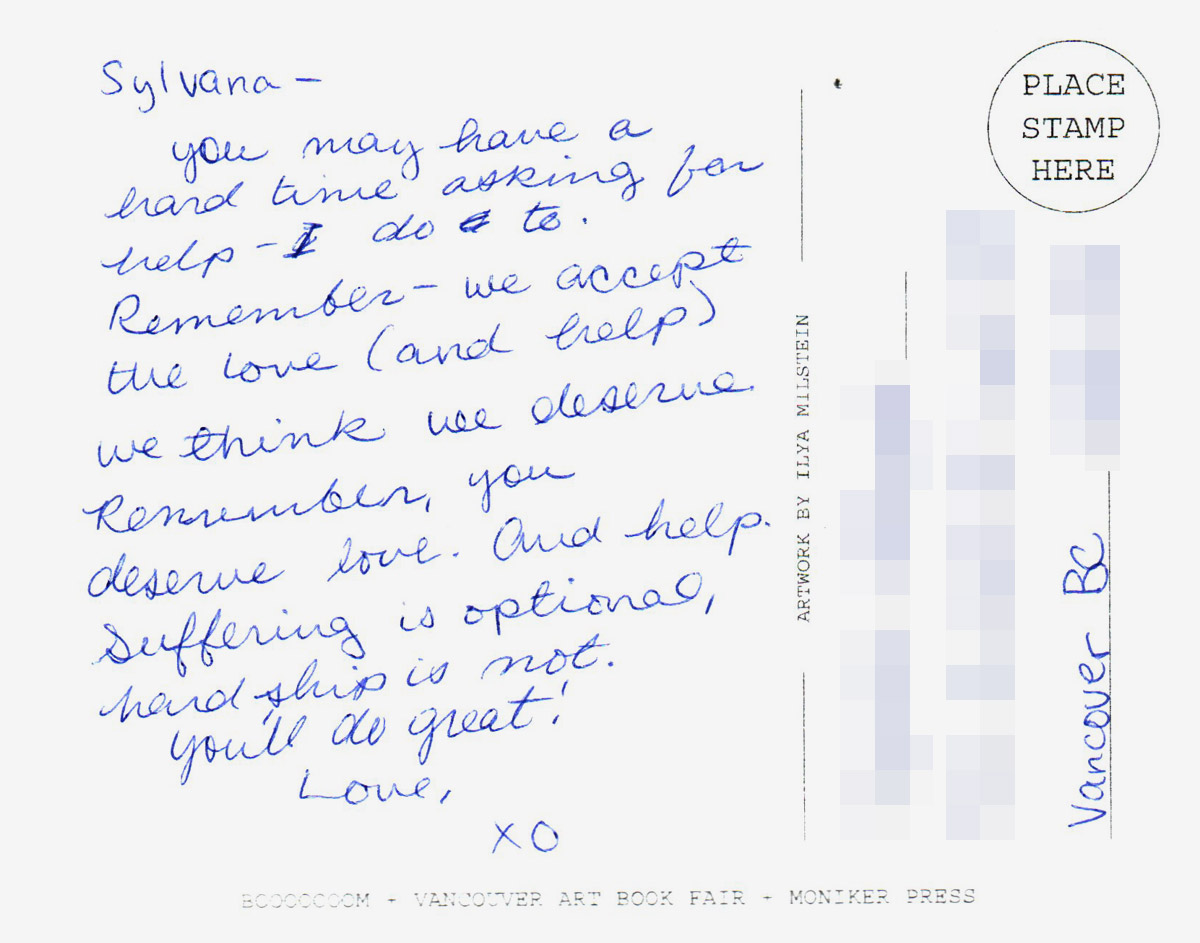 Sylvana –
you may have a
hard time asking for
help – I do to.
Remember – we accept
the love (and help)
we think we deserve.
Remember, you
deserve love. And help.
Suffering is optional,
hardship is not.
You'll do great!
Love,
XO
PLACE
STAMP
HERE
ARTWORK BY ILYA MILSTEIN
Vancouver BC
BOOOOOOOM + VANCOUVER ART BOOK FAIR + MONIKER PRESS